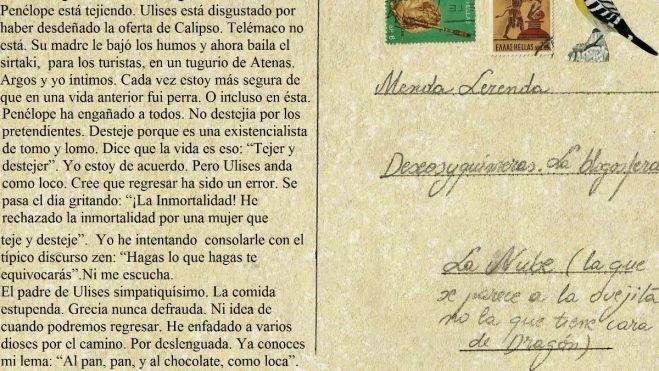 Penélope está tejiendo. Ulises está disgustado por
haber desdeñado la oferta de Calipso. Telémaco no
está. Su madre le bajó los humos y ahora baila el
sirtaki, para los turistas, en un tugurio de Atenas.
Argos y yo íntimos. Cada vez estoy más segura de
que en una vida anterior fui perra. O incluso en ésta.
Penélope ha engañado a todos. No destejia por los
pretendientes. Desteje porque es una existencialista
de tomo y lomo. Dice que la vida es eso: “Tejer y
destejer”. Yo estoy de acuerdo. Pero Ulises anda
como loco. Cree que regresar ha sido un error. Se
pasa el día gritando: “¡La Inmortalidad! He
rechazado la inmortalidad por una mujer que
teje y desteje”. Yo he intentando consolarle con el
típico discurso zen: “Hagas lo que hagas te
equivocarás”.Ni me escucha.
El padre de Ulises simpatiquísimo. La comida
estupenda. Grecia nunca defrauda. Ni idea de
cuando podremos regresar. He enfadado a varios
dioses por el camino. Por deslenguada. Ya conoces
mi lema: “Al pan, pan, y al chocolate, como loca”.
ΕΛΛΑΣ-HELLAS
Menda. Lerenda
Deseosyquimeras. La blogosfera
La Nube (la que
se parece a la ovejita
no la que tiene cara
de Dragón)